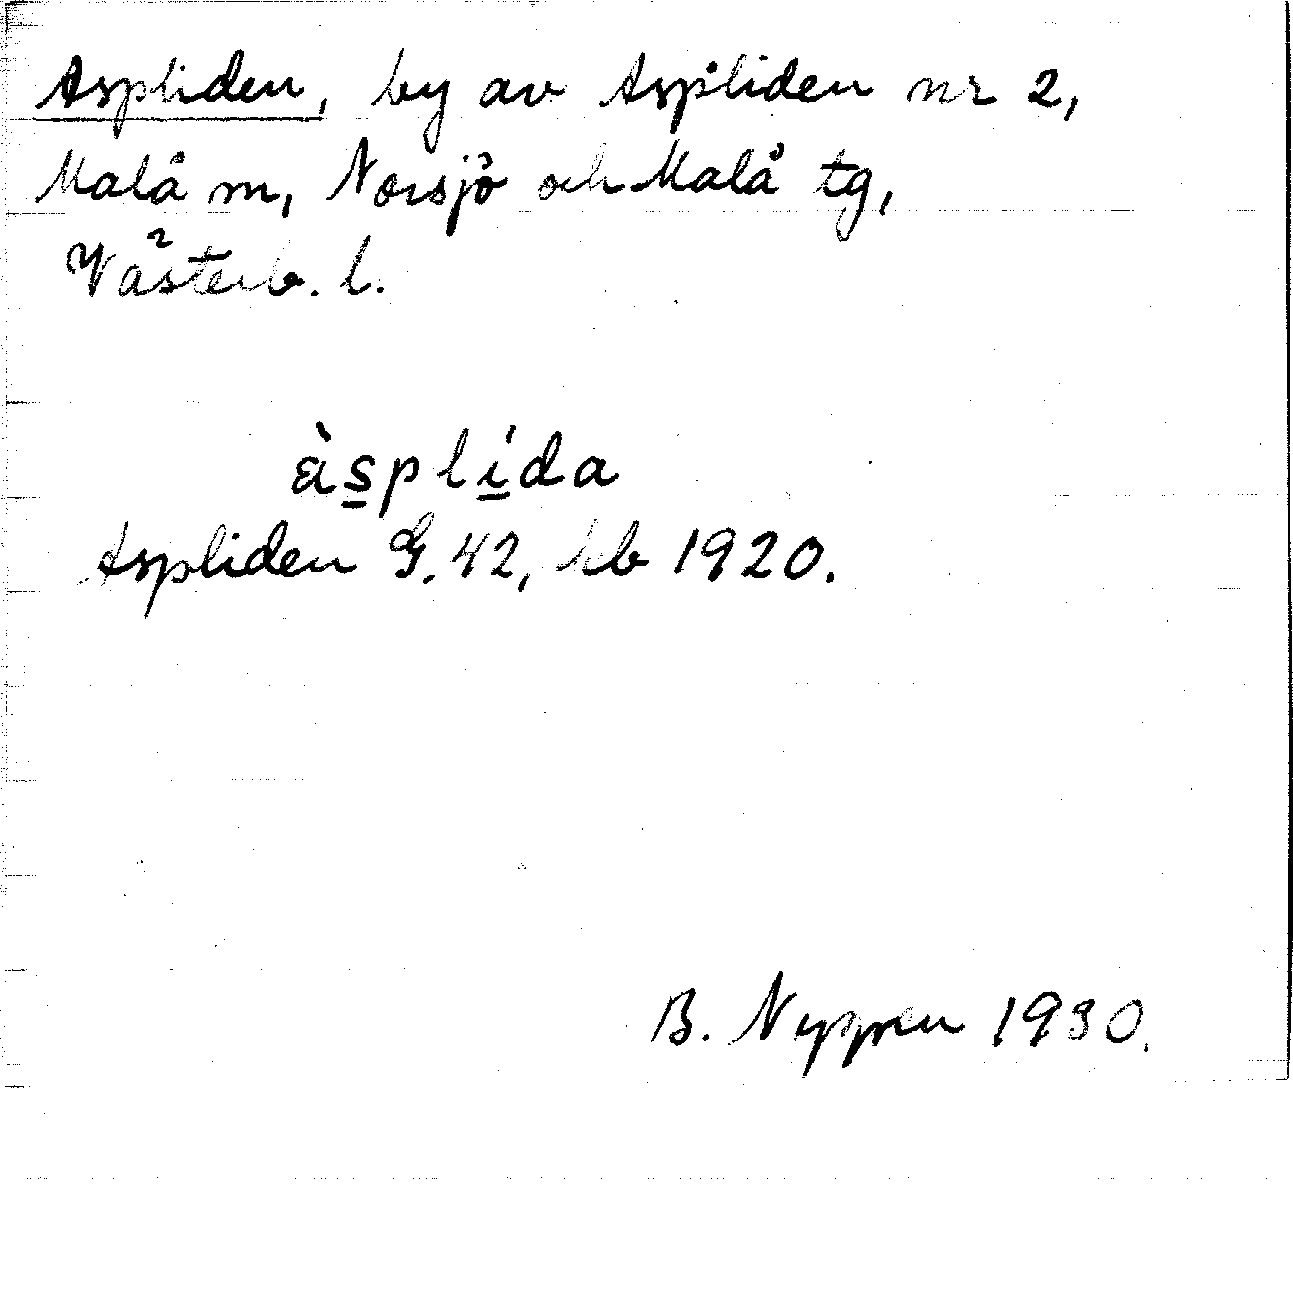 Aspliden, by av Aspliden nr 2,
Malå m, Norsjö och Malå tg,
Västerb. l.
às̲plí̲da
Aspliden G. 42, kb 1920.
B. Nygren 1930.